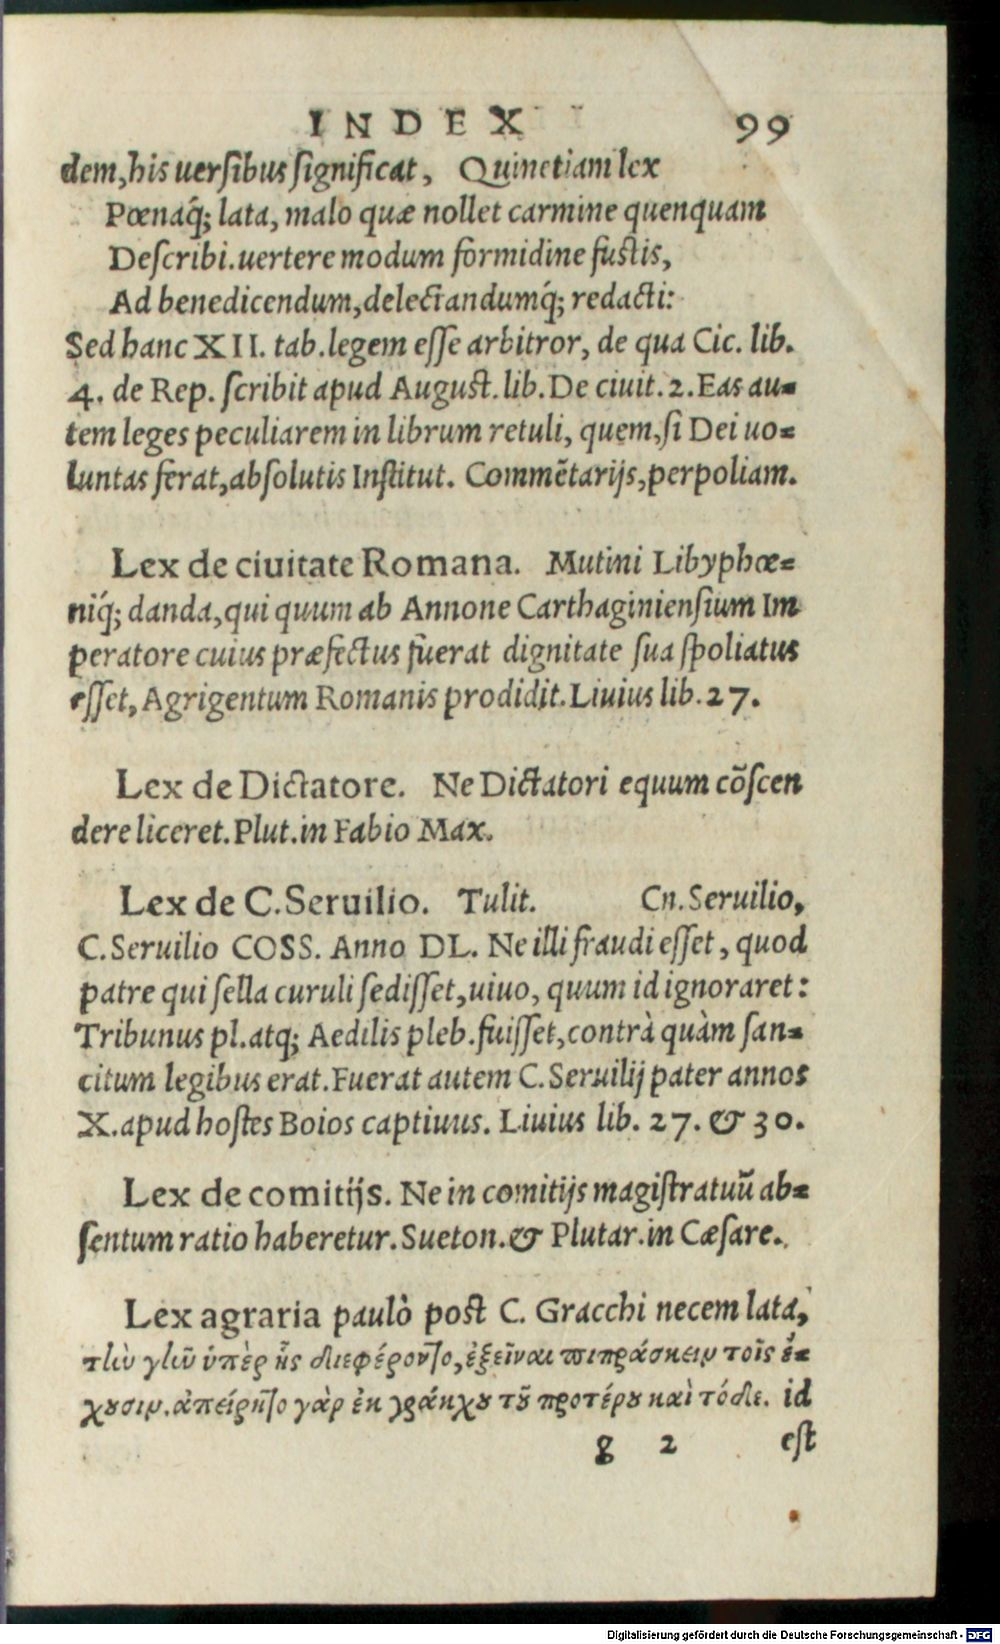 INDEX 99
dem, his uersibus significat, Quinetiam lex
Pœnaq́; lata, malo quæ nollet carmine quenquam
Describi. uertere modum formidine fustis,
Ad benedicendum, delectandumq́; redacti:
Sed hanc XII. tab. legem esse arbitror, de qua Cic. lib.
4. de Rep. scribit apud August. lib. De ciuit. 2. Eas au-
tem leges peculiarem in librum retuli, quem, si Dei uo-
luntas ferat, absolutis Institut. Commētarijs, perpoliam.
Lex de ciuitate Romana. Mutini Libyphœ-
niq́; danda, qui quum ab Annone Carthaginiensium Im
peratore cuius præfectus fuerat dignitate sua spoliatus
esset, Agrigentum Romanis prodidit. Liuius lib. 27.
Lex de Dictatore. Ne Dictatori equum cōscen
dere liceret. Plut. in Fabio Max.
Lex de C. Seruilio. Tulit. Cn. Seruilio,
C. Seruilio COSS. Anno DL. Ne illi fraudi esset, quod
patre qui sella curuli sedisset, uiuo, quum id ignoraret:
Tribunus pl. atq; Aedilis pleb. fuisset, contrà quàm san-
citum legibus erat. Fuerat autem C. Seruilij pater annos
X. apud hostes Boios captiuus. Liuius lib. 27. & 30.
Lex de comitijs. Ne in comitijs magistratuū ab-
sentum ratio haberetur. Sueton. & Plutar. in Cæsare.
Lex agraria paulò post C. Gracchi necem lata,
τὴν γῆν ὑπὲρ ἧς διεφέροντο, ἐξεῖναι πιπράσκειν τοῖς ἔ-
χουσιν. ἀπείρητο γὰρ ἐκ γράκχου τοῦ προτέρου καὶ τόδε. id
g 2 est
Digitalisierung gefördert durch die Deutsche Forschungsgemeinschaft - DFG